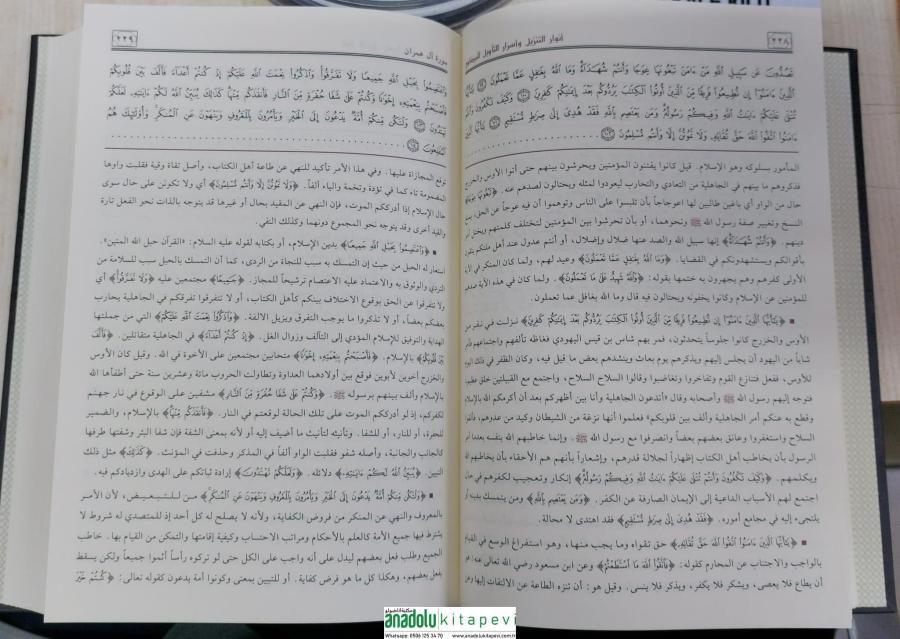 ٢٢٨
أنوار التنزيل وأسرار التأويل
تَصُدُّونَ عَن سَبِيلِ اللَّهِ مَنْ ءَامَنَ تَبْغُونَهَا عِوَجًا وَأَنتُمْ شُهَدَاءُ وَمَا اللَّهُ بِغَافِلٍ عَمَّا تَعْمَلُونَ ٩٩ يَأَيُّهَا
الَّذِينَ ءَامَنُوا إِن تُطِيعُوا فَرِيقًا مِّنَ الَّذِينَ أُوتُوا الْكِتَابَ يَرُدُّوكُم بَعْدَ إِيمَانِكُمْ كَافِرِينَ ١٠٠ وَكَيْفَ تَكْفُرُونَ وَأَنتُمْ
تُتْلَى عَلَيْكُمْ ءَايَاتُ اللَّهِ وَفِيكُمْ رَسُولُهُ وَمَن يَعْتَصِم بِاللَّهِ فَقَدْ هُدِيَ إِلَى صِرَاطٍ مُّسْتَقِيمٍ ١٠١ يَأَيُّهَا الَّذِينَ
ءَامَنُوا اتَّقُوا اللَّهَ حَقَّ تُقَاتِهِ وَلَا تَمُوتُنَّ إِلَّا وَأَنتُم مُّسْلِمُونَ ١٠٢
المأمور بسلوكه وهو الإسلام. قيل كانوا يفتنون المؤمنين ويحرشون بينهم حتى أتوا الأوس والخزرج
فذكروهم ما بينهم في الجاهلية من التعادي والتحارب ليعودوا لمثله ويحتالون لصدهم عنه. ﴿تَبْغُونَهَا عِوَجًا﴾
حال من الواو أي باغين طالبين لها اعوجاجاً بأن تلبسوا على الناس وتوهموا أن فيه عوجاً عن الحق، بمنع
النسخ وتغيير صفة رسول الله ﷺ ونحوهما، أو بأن تحرشوا بين المؤمنين لتختلف كلمتهم ويختل أمر
دينهم. ﴿وَأَنتُمْ شُهَدَاءُ﴾ إنها سبيل الله والصد عنها ضلال وإضلال، أو أنتم عدول عند أهل ملتكم يثقون
بأقوالكم ويستشهدونكم في القضايا. ﴿وَمَا اللَّهُ بِغَافِلٍ عَمَّا تَعْمَلُونَ﴾ وعيد لهم، ولما كان المنكر في الآية
الأولى كفرهم وهم يجهرون به ختمها بقوله: ﴿وَاللَّهُ شَهِيدٌ عَلَى مَا تَعْمَلُونَ﴾. ولما كان في هذه الآية صدهم
للمؤمنين عن الإسلام وكانوا يخفونه ويحتالون فيه قال وما الله بغافل عما تعملون.
﴿يَأَيُّهَا الَّذِينَ ءَامَنُوا إِن تُطِيعُوا فَرِيقًا مِّنَ الَّذِينَ أُوتُوا الْكِتَابَ يَرُدُّوكُم بَعْدَ إِيمَانِكُمْ كَافِرِينَ﴾ نزلت في نفر من
الأوس والخزرج كانوا جلوساً يتحدثون، فمر بهم شاس بن قيس اليهودي فغاظه تألفهم واجتماعهم فأمر
شاباً من اليهود أن يجلس إليهم ويذكرهم يوم بعاث وينشدهم بعض ما قيل فيه، وكان الظفر في ذلك اليوم
للأوس، ففعل فتنازع القوم وتفاخروا وتغاضبوا وقالوا السلاح السلاح، واجتمع مع القبيلتين خلق عظيم
فتوجه إليهم رسول الله ﷺ وأصحابه وقال «أتدعون الجاهلية وأنا بين أظهركم بعد أن أكرمكم الله بالإسلام
وقطع به عنكم أمر الجاهلية وألف بين قلوبكم» فعلموا أنها نزغة من الشيطان وكيد من عدوهم، فألقوا
السلاح واستغفروا وعانق بعضهم بعضاً وانصرفوا مع رسول الله ﷺ. وإنما خاطبهم الله بنفسه بعدما أمر
الرسول بأن يخاطب أهل الكتاب إظهاراً لجلالة قدرهم، وإشعاراً بأنهم هم الأحقاء بأن يخاطبهم الله
ويكلمهم. ﴿وَكَيْفَ تَكْفُرُونَ وَأَنتُمْ تُتْلَى عَلَيْكُمْ ءَايَاتُ اللَّهِ وَفِيكُمْ رَسُولُهُ﴾ إنكار وتعجيب لكفرهم في حال
اجتمع لهم الأسباب الداعية إلى الإيمان الصارفة عن الكفر. ﴿وَمَن يَعْتَصِم بِاللَّهِ﴾ ومن يتمسك بدينه أو
يلتجىء إليه في مجامع أموره. ﴿فَقَدْ هُدِيَ إِلَى صِرَاطٍ مُّسْتَقِيمٍ﴾ فقد اهتدى لا محالة.
﴿يَأَيُّهَا الَّذِينَ ءَامَنُوا اتَّقُوا اللَّهَ حَقَّ تُقَاتِهِ﴾ حق تقواه وما يجب منها، وهو استفراغ الوسع في القيام
بالواجب والاجتناب عن المحارم كقوله: ﴿فَاتَّقُوا اللَّهَ مَا اسْتَطَعْتُمْ﴾ وعن ابن مسعود رضي الله تعالى عنه: هو
أن يطاع فلا يعصى، ويشكر فلا يكفر، ويذكر فلا ينسى. وقيل هو: أن تنزه الطاعة عن الالتفات إليها وعن
٢٢٩
سورة آل عمران
وَاعْتَصِمُوا بِحَبْلِ اللَّهِ جَمِيعًا وَلَا تَفَرَّقُوا وَاذْكُرُوا نِعْمَتَ اللَّهِ عَلَيْكُمْ إِذْ كُنتُمْ أَعْدَاءً فَأَلَّفَ بَيْنَ قُلُوبِكُمْ
فَأَصْبَحْتُم بِنِعْمَتِهِ إِخْوَانًا وَكُنتُمْ عَلَى شَفَا حُفْرَةٍ مِّنَ النَّارِ فَأَنقَذَكُم مِّنْهَا كَذَلِكَ يُبَيِّنُ اللَّهُ لَكُمْ ءَايَاتِهِ لَعَلَّكُمْ
تَهْتَدُونَ ١٠٣ وَلْتَكُن مِّنكُمْ أُمَّةٌ يَدْعُونَ إِلَى الْخَيْرِ وَيَأْمُرُونَ بِالْمَعْرُوفِ وَيَنْهَوْنَ عَنِ الْمُنكَرِ وَأُولَئِكَ هُمُ
الْمُفْلِحُونَ ١٠٤
توقع المجازاة عليها. وفي هذا الأمر تأكيد للنهي عن طاعة أهل الكتاب، وأصل تقاة وقية فقلبت واوها
المضمومة تاء كما في تؤدة وتخمة والياء ألفاً. ﴿وَلَا تَمُوتُنَّ إِلَّا وَأَنتُم مُّسْلِمُونَ﴾ أي ولا تكونن على حال سوى
حال الإسلام إذا أدرككم الموت، فإن النهي عن المقيد بحال أو غيرها قد يتوجه بالذات نحو الفعل تارة
والقيد أخرى وقد يتوجه نحو المجموع دونهما وكذلك النفي.
﴿وَاعْتَصِمُوا بِحَبْلِ اللَّهِ جَمِيعًا﴾ بدين الإسلام، أو بكتابه لقوله عليه السلام: «القرآن حبل الله المتين».
استعار له الحبل من حيث إن التمسك به سبب للنجاة من الردى، كما أن التمسك بالحبل سبب للسلامة من
التردي والوثوق به والاعتماد عليه الاعتصام ترشيحاً للمجاز. ﴿جَمِيعًا﴾ مجتمعين عليه ﴿وَلَا تَفَرَّقُوا﴾ أي
ولا تتفرقوا عن الحق بوقوع الاختلاف بينكم كأهل الكتاب، أو لا تتفرقوا تفرقكم في الجاهلية يحارب
بعضكم بعضاً، أو لا تذكروا ما يوجب التفرق ويزيل الألفة. ﴿وَاذْكُرُوا نِعْمَتَ اللَّهِ عَلَيْكُمْ﴾ التي من جملتها
الهداية والتوفيق للإسلام المؤدي إلى التآلف وزوال الغل. ﴿إِذْ كُنتُمْ أَعْدَاءً﴾ في الجاهلية متقاتلين. ﴿فَأَلَّفَ
بَيْنَ قُلُوبِكُمْ﴾ بالإسلام. ﴿فَأَصْبَحْتُم بِنِعْمَتِهِ إِخْوَانًا﴾ متحابين مجتمعين على الأخوة في الله. وقيل كان الأوس
والخزرج أخوين لأبوين فوقع بين أولادهما العداوة وتطاولت الحروب مائة وعشرين سنة حتى أطفأها الله
بالإسلام وألف بينهم برسوله ﷺ. ﴿وَكُنتُمْ عَلَى شَفَا حُفْرَةٍ مِّنَ النَّارِ﴾ مشفين على الوقوع في نار جهنم
لكفركم، إذ لو أدرككم الموت على تلك الحالة لوقعتم في النار. ﴿فَأَنقَذَكُم مِّنْهَا﴾ بالإسلام، والضمير
للحفرة، أو للنار، أو للشفا. وتأنيثه لتأنيث ما أضيف إليه أو لأنه بمعنى الشفة فإن شفا البئر وشفتها طرفها
كالجانب والجانبة، وأصله شفو فقلبت الواو ألفاً في المذكر وحذفت في المؤنث. ﴿كَذَلِكَ﴾ مثل ذلك
التبيين. ﴿يُبَيِّنُ اللَّهُ لَكُمْ ءَايَاتِهِ﴾ دلائله. ﴿لَعَلَّكُمْ تَهْتَدُونَ﴾ إرادة ثباتكم على الهدى وازديادكم فيه.
﴿وَلْتَكُن مِّنكُمْ أُمَّةٌ يَدْعُونَ إِلَى الْخَيْرِ وَيَأْمُرُونَ بِالْمَعْرُوفِ وَيَنْهَوْنَ عَنِ الْمُنكَرِ﴾ من للتبعيض، لأن الأمر
بالمعروف والنهي عن المنكر من فروض الكفاية، ولأنه لا يصلح له كل أحد إذ للمتصدي له شروط لا
يشترط فيها جميع الأمة كالعلم بالأحكام ومراتب الاحتساب وكيفية إقامتها والتمكن من القيام بها. خاطب
الجميع وطلب فعل بعضهم ليدل على أنه واجب على الكل حتى لو تركوه رأساً أثموا جميعاً ولكن يسقط
بفعل بعضهم، وهكذا كل ما هو فرض كفاية. أو للتبيين بمعنى وكونوا أمة يدعون كقوله تعالى: ﴿كُنتُمْ خَيْرَ
anadolukitapevi
Whatsapp: 0506 125 34 70 www.anadolukitapevi.com.tr